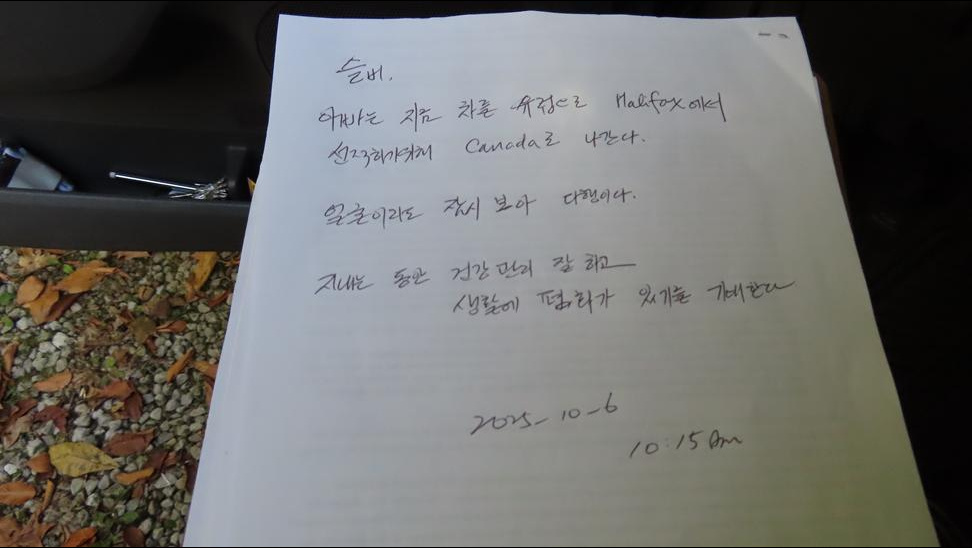 슬버,
아빠는 지금 차를 유정으로 Halifax에서
Canada로 나간다.
얼굴이라도 잠시 보아 다행이다.
지내는 동안 건강관리 잘 하고
생활에 평화가 있기를 기대한다
2025-10-6
10:15 Am